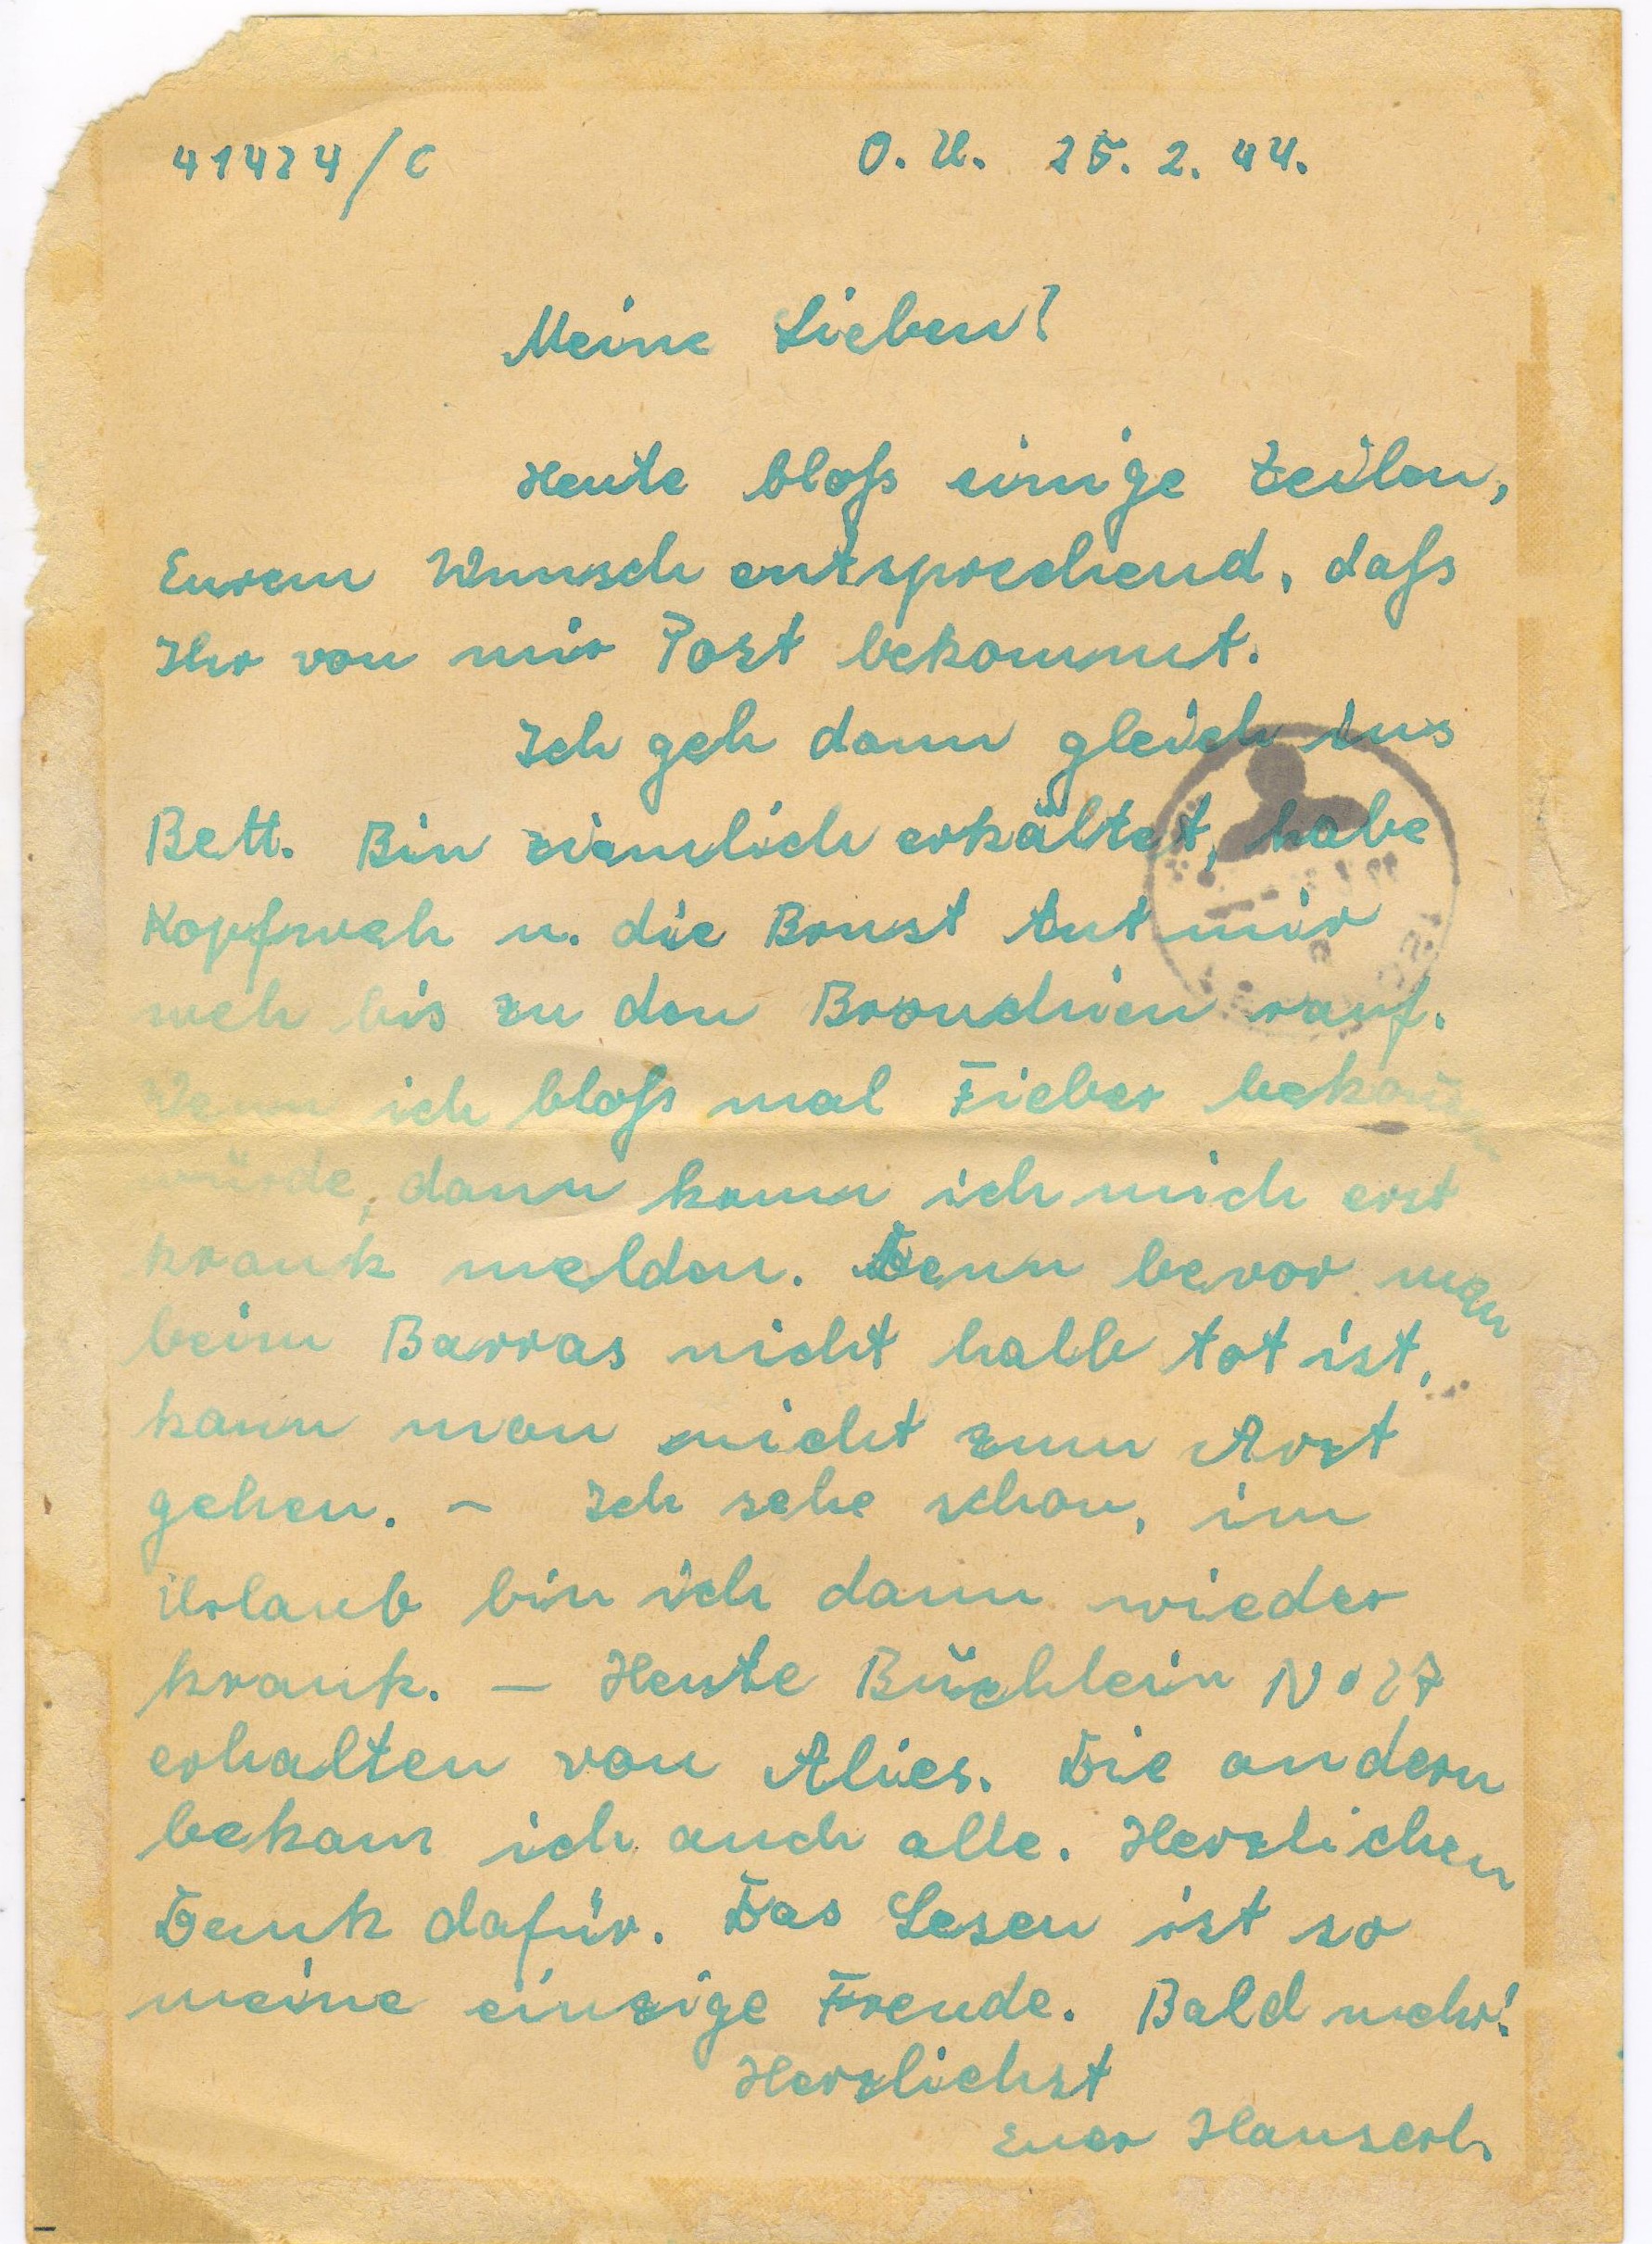 41424/C O.U. 25.2.44.
Meine Lieben!
Heute bloß einige Zeilen,
Eurem Wunsch entsprechend, daß
Ihr von mir Post bekommt.
Ich geh dann gleich ins
Bett. Bin ziemlich erkältet, habe
Kopfweh u. die Brust tut mir
weh bis zu den Bronchien rauf.
Wenn ich bloß mal Fieber bekommen
würde, dann kann ich mich erst
krank melden. Denn bevor man
beim Barras nicht halb tot ist,
kann man nicht zum Arzt
gehen. – Ich sehe schon, im
Urlaub bin ich dann wieder
krank. – Heute Büchlein No 27
erhalten von Alies. Die andern
bekam ich auch alle. Herzlichen
Dank dafür. Das Lesen ist so
meine einzige Freude. Bald mehr!
Herzlichst
Euer Hanserl.